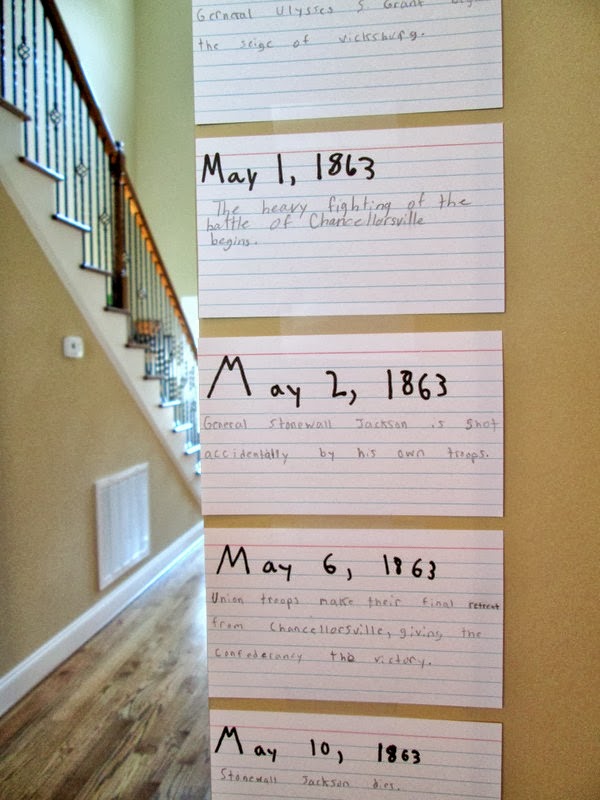 General Ulysses S. Grant
the seige of vicksburg.
May 1, 1863
The heavy fighting of the
battle of Chancellorsville
begins.
May 2, 1863
General Stonewall Jackson is shot
accidentally by his own troops.
May 6, 1863
Union troops make their final retreat
from Chancellorsville, giving the
Confederancy the victory.
May 10, 1863
Stonewall Jackson dies.